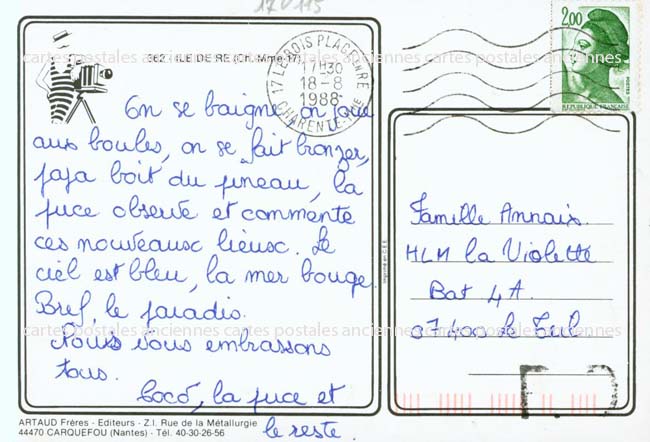 17V115
2,00
POSTES
REPUBLIQUE FRANÇAISE
862 - ILE DE RE (Ch.-Mme-17)
17 LE BOIS PLAGE EN RE
17H30
18-8
1988
CHARENTE-MME
On se baigne, on joue
aux boules, on se fait bronzer,
jaja boit du pineau, la
puce observe et commente
ces nouveaux lieux. Le
ciel est bleu, la mer bouge.
Bref, le paradis.
Nous vous embrassons
tous.
Coco, la puce et
le reste.
Imprimé en C.E.E.
Famille Annaix
HLM la Violette
Bat 4A.
07400 le Teil
ARTAUD Frères - Editeurs - Z.I. Rue de la Métallurgie
44470 CARQUEFOU (Nantes) - Tél. 40-30-26-56
cartes postales anciennes cartes postales anciennes cartes postales anciennes
cartes postales anciennes cartes postales anciennes cartes postales anciennes